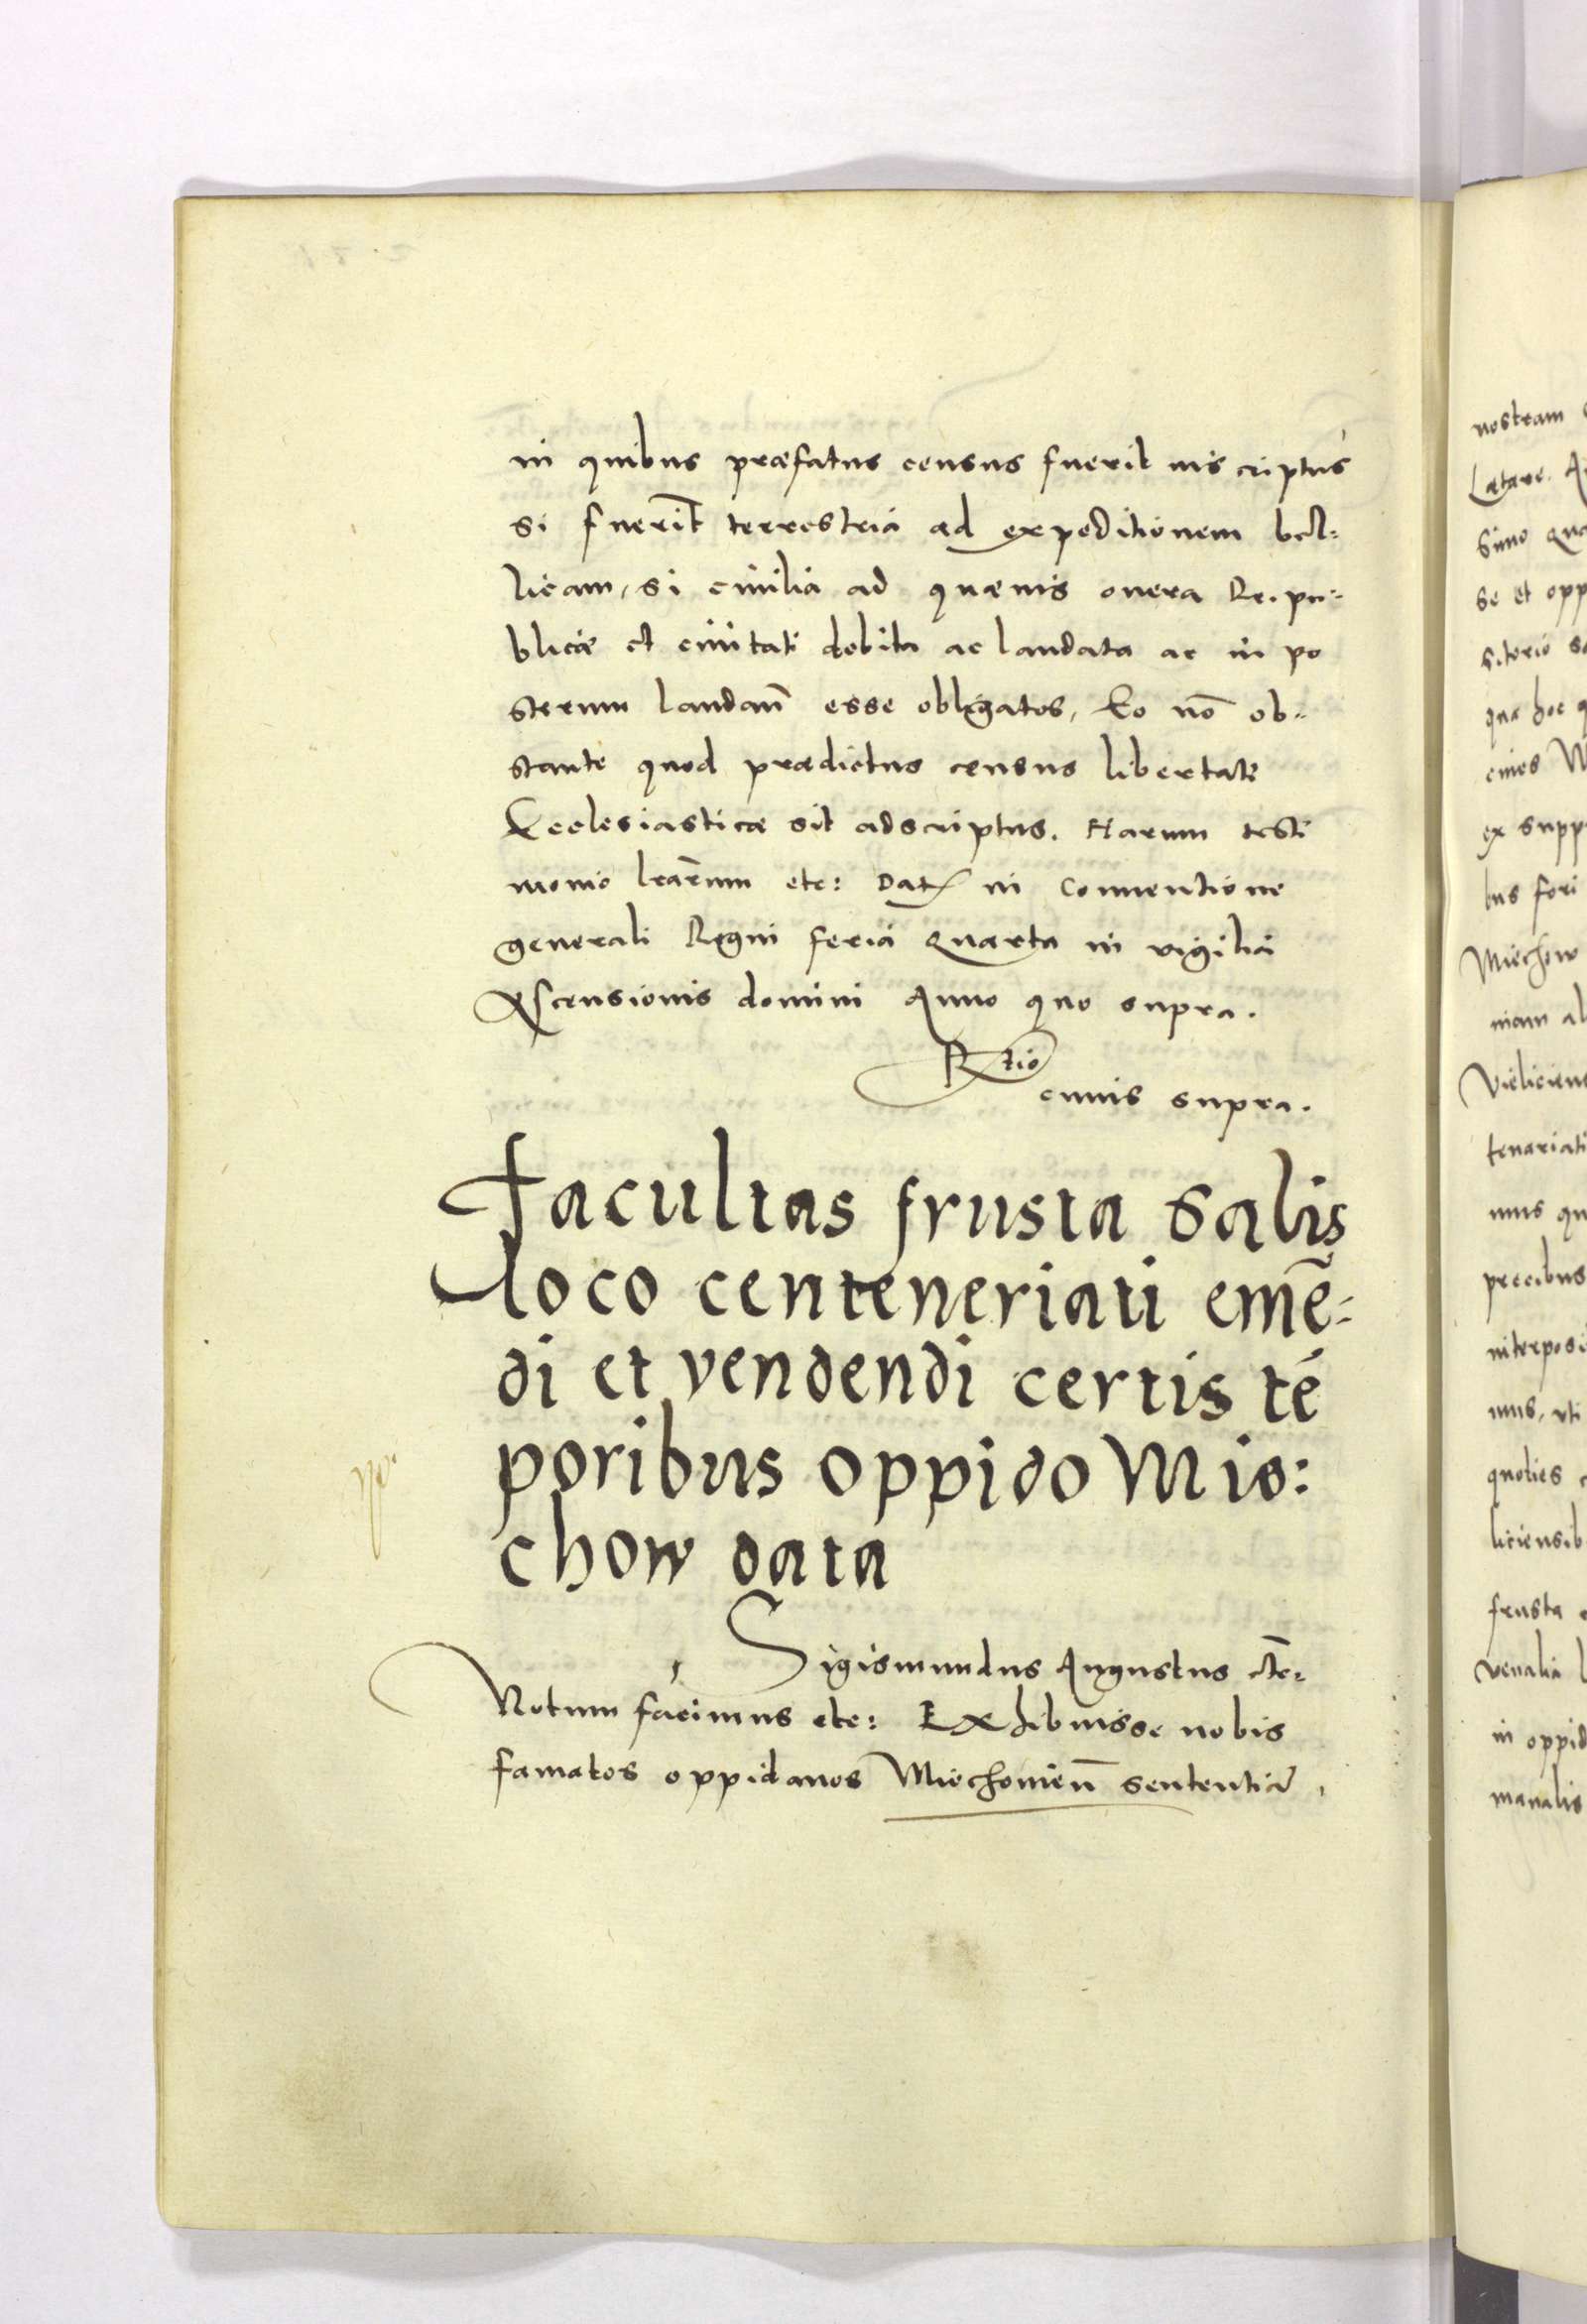 in quibus præfatus census fuerit inscriptus
si fuerīt terrestria ad expeditionem bel=
licam, si ciuilia ad quæuis onera Rei pu=
blicæ et ciuitati debita ac laudata ac in po
sterum laudañ esse obligatos, Eo nō ob=
stante quod prædictus census libertati
Ecclesiasticæ sit adscriptus. Harum testi
monio lrarum etc: Dat in Conuentione
generali Regni feria quarta in vigilia
Ascensionis domini Anno quo supra.
Rtio
cuius supra.
Facultas frusta Salis
loco centeneriati emē=
di et vendendi certis té
poribus oppido Mie:
chow data
Sigismundus Augustus etc=
Notum facimus etc: Exhibuisse nobis
famatos oppidanos Miechouieñ sententiā,
nostram
Lætare. A
simo qua
se et opp
sitorio sa
qua hoc q
ciues W
ex supp
bus fori
Miechow
niam al
Vieliciens
tenariati
mus qu
precibus
interposi
mus, vti
quoties
liciensib
frusta
venalia l
in oppid
manalis